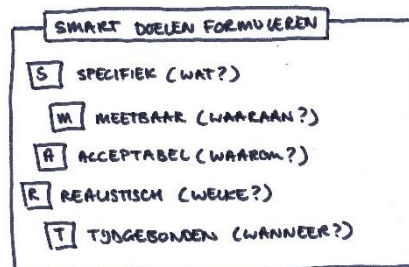 SMART DOELEN FORMULEREN
S SPECIFIEK (WAT?)
M MEETBAAR (WAARAAN?)
A ACCEPTABEL (WAAROM?)
R REALISTISCH (WELKE?)
T TIJDGEBONDEN (WANNEER?)